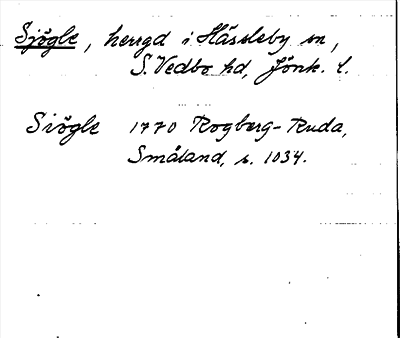 Sjögle, herrgd i Hässleby sn,
S. Vedbo hd, Jönk. l.
Siögle 1770 Rogberg-Ruda,
Småland, s. 1034.